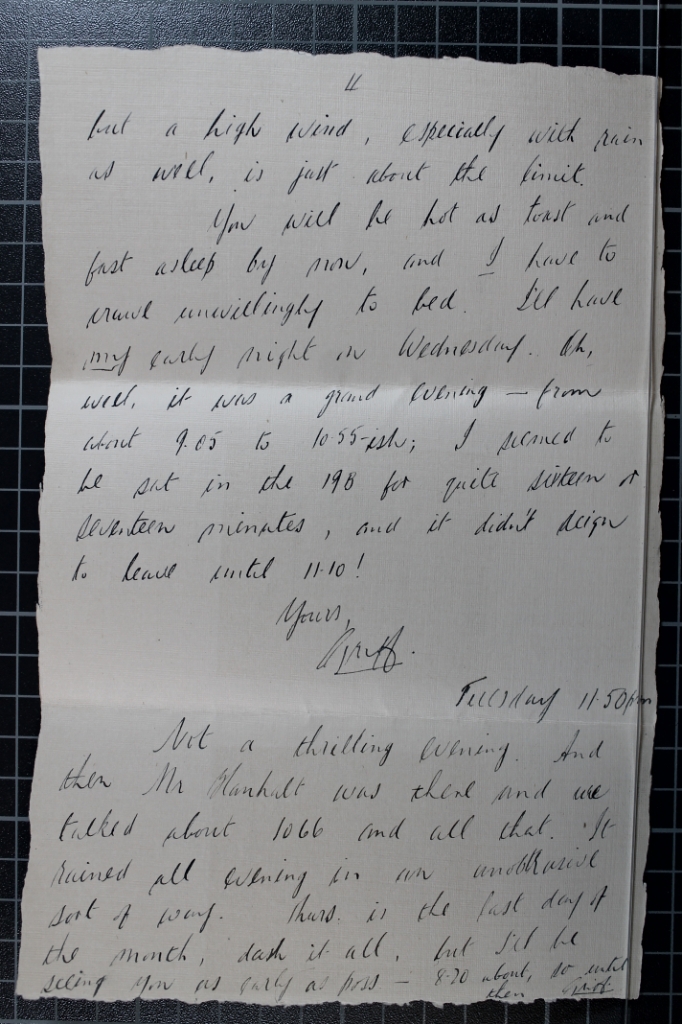 4
but a high wind, especially with rain
as well, is just about the limit.
You will be hot as toast and
fast asleep by now, and I have to
crawl unwillingly to bed. I'll have
my early night on Wednesday. Oh,
well, it was a grand evening – from
about 9.05 to 10.55-ish; I seemed to
be sat in the 19B for quite sixteen or
seventeen minutes, and it didn't deign
to leave until 11.10!
Yours,
Griff.
Tuesday 11.50pm
Not a thrilling evening. And
then Mr was there and we
talked about 1066 and all that. It
rained all evening in an unobtrusive
sort of way. Thurs. is the last day of
the month, dash it all, but I'll be
seeing you as early as poss – 8.20 about, so until
then Griff